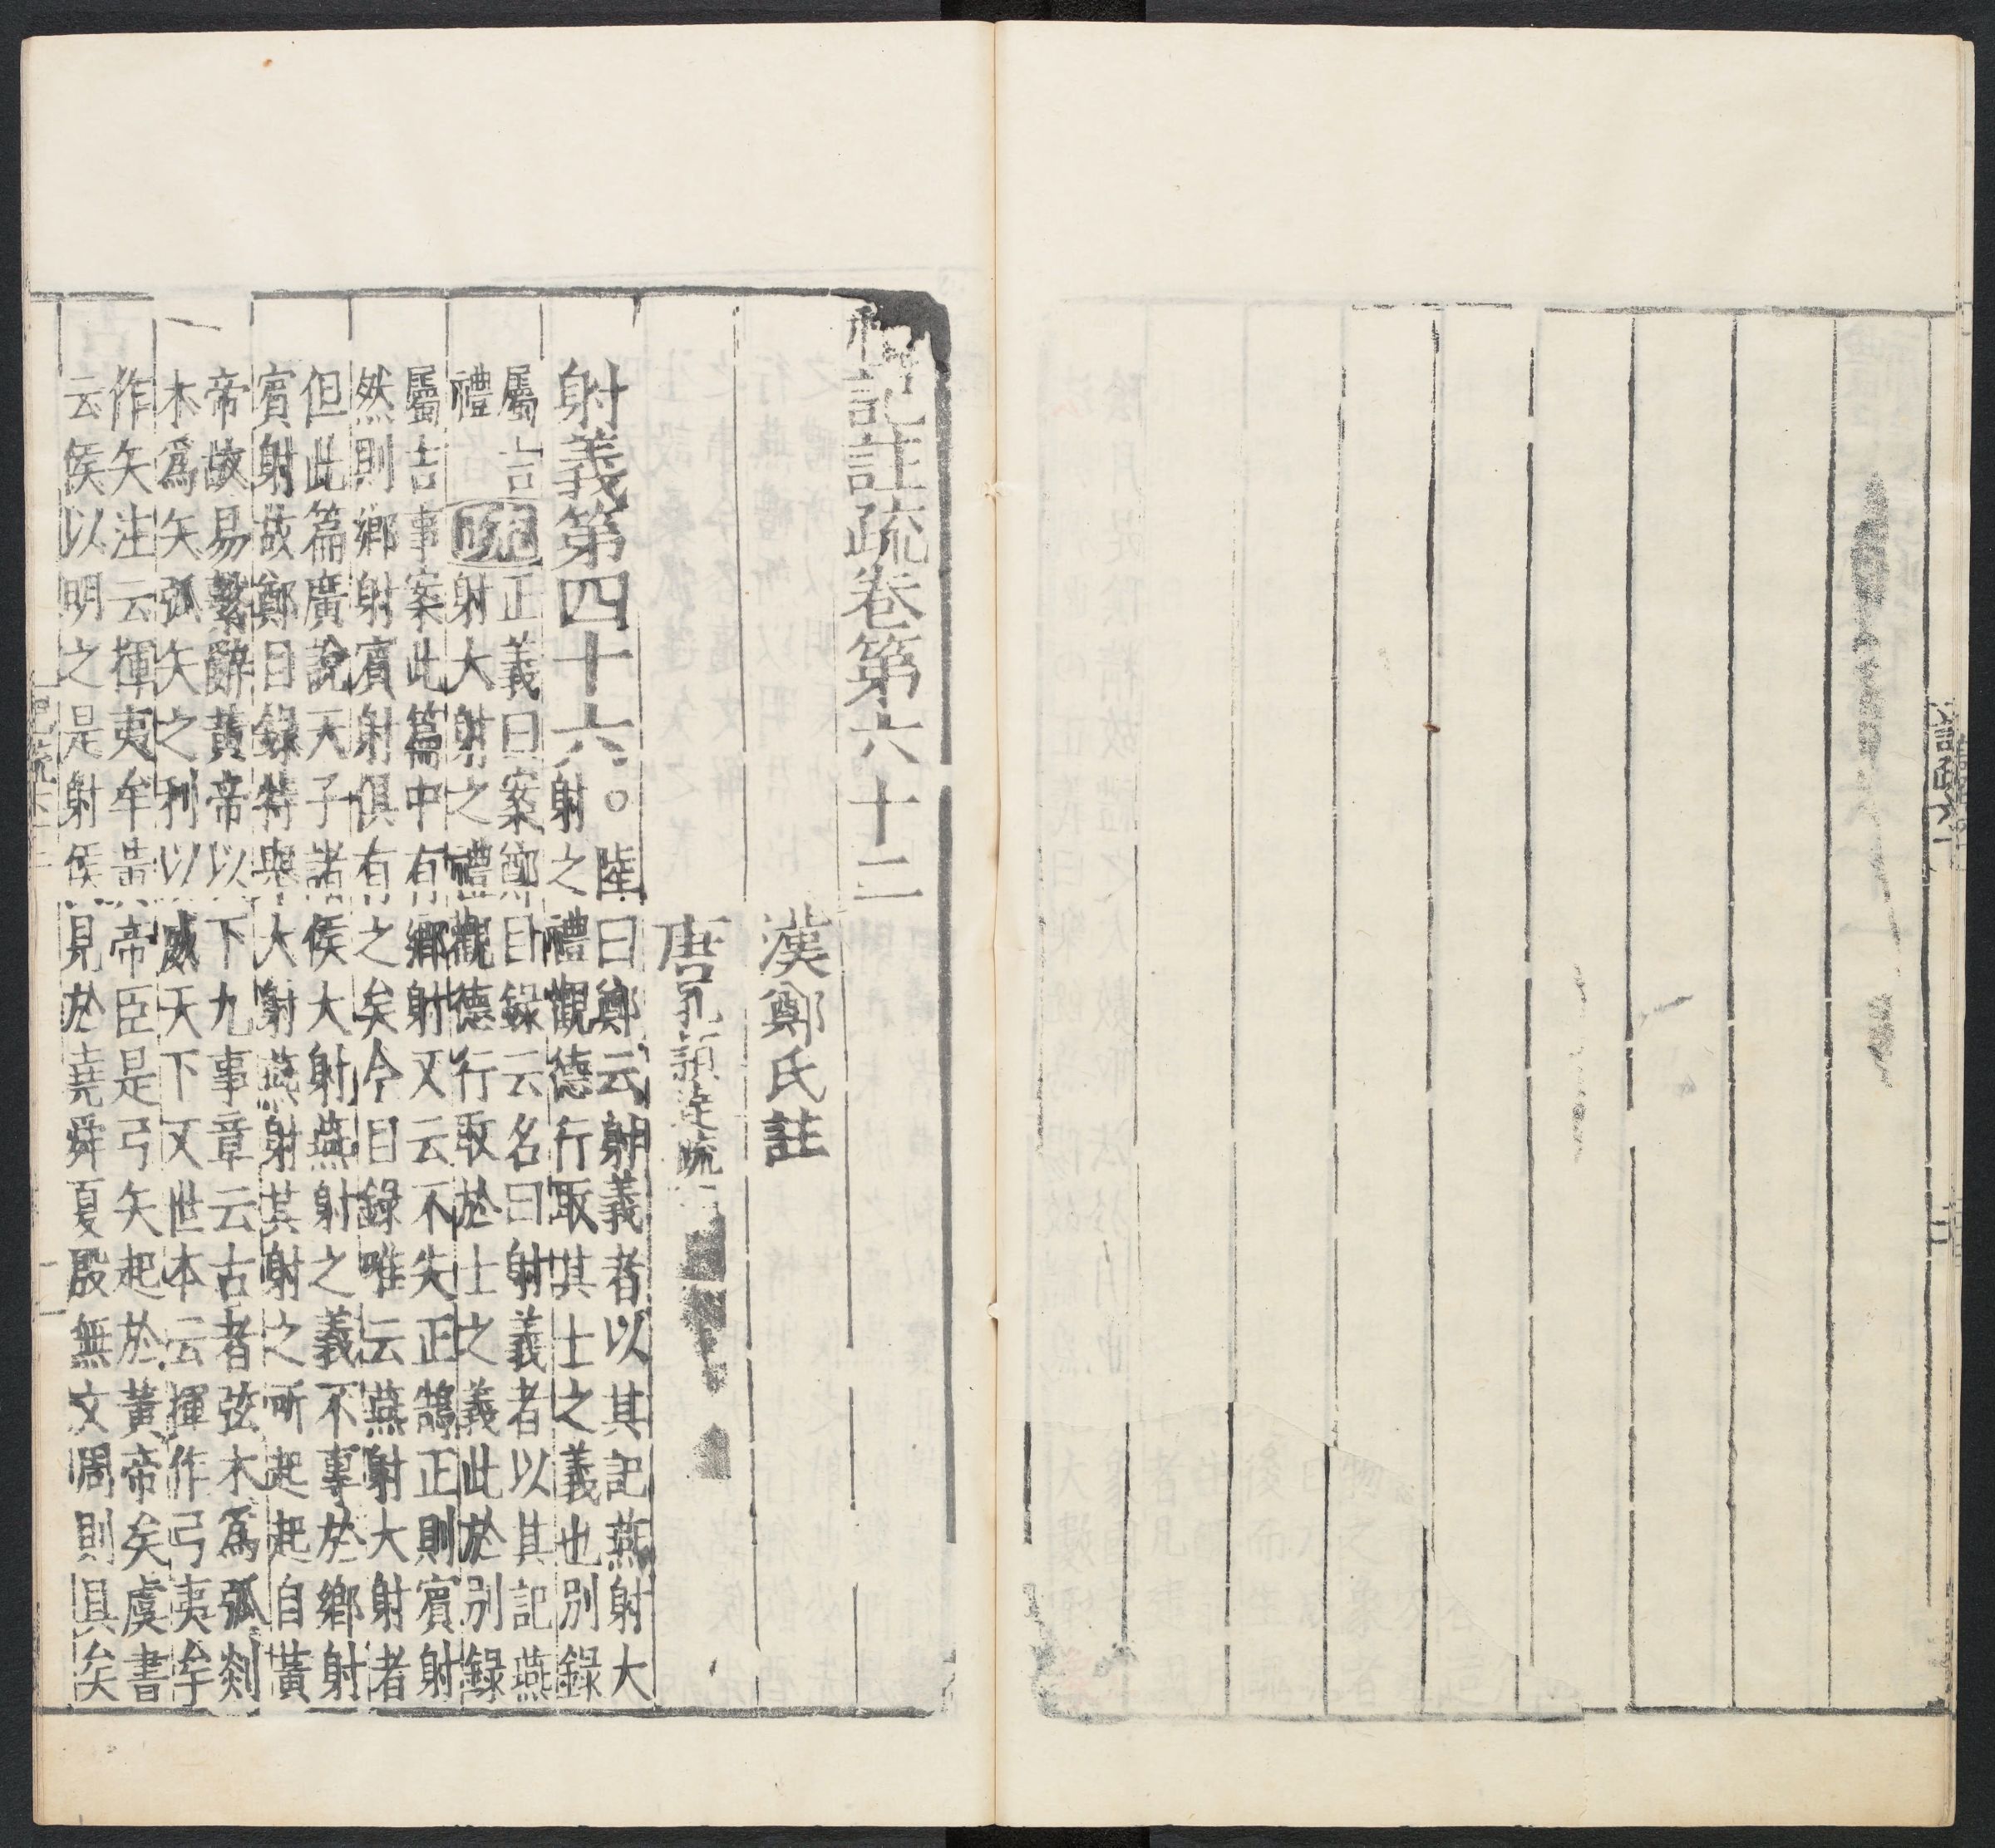 禮記註疏卷第六十二
漢鄭氏註
唐孔穎達疏
射義第四十六。陸曰鄭云射義者以其記燕射大
射之禮觀德行取其士之義也別錄
屬吉
禮
疏
正義曰案鄭目錄云名曰射義者以其記燕
射大射之禮觀德行取於士之義此於別錄
屬吉事案此篇中有鄉射又云不失正鵠正則賓射
然則鄉射賓射俱有之矣今目錄唯云燕射大射者
但此篇廣說天子諸侯大射燕射之義不專於鄉射
賓射故鄭目錄特舉大射燕射其射之所起起自黃
帝故易繫辭黃帝以下九事章云古者弦木爲弧剡
木爲矢弧矢之利以威天下又世本云揮作弓夷牟
作矢注云揮夷牟黃帝臣是弓矢起於黃帝矣虞書
云侯以明之是射侯見於堯舜夏殷無文周則具矣